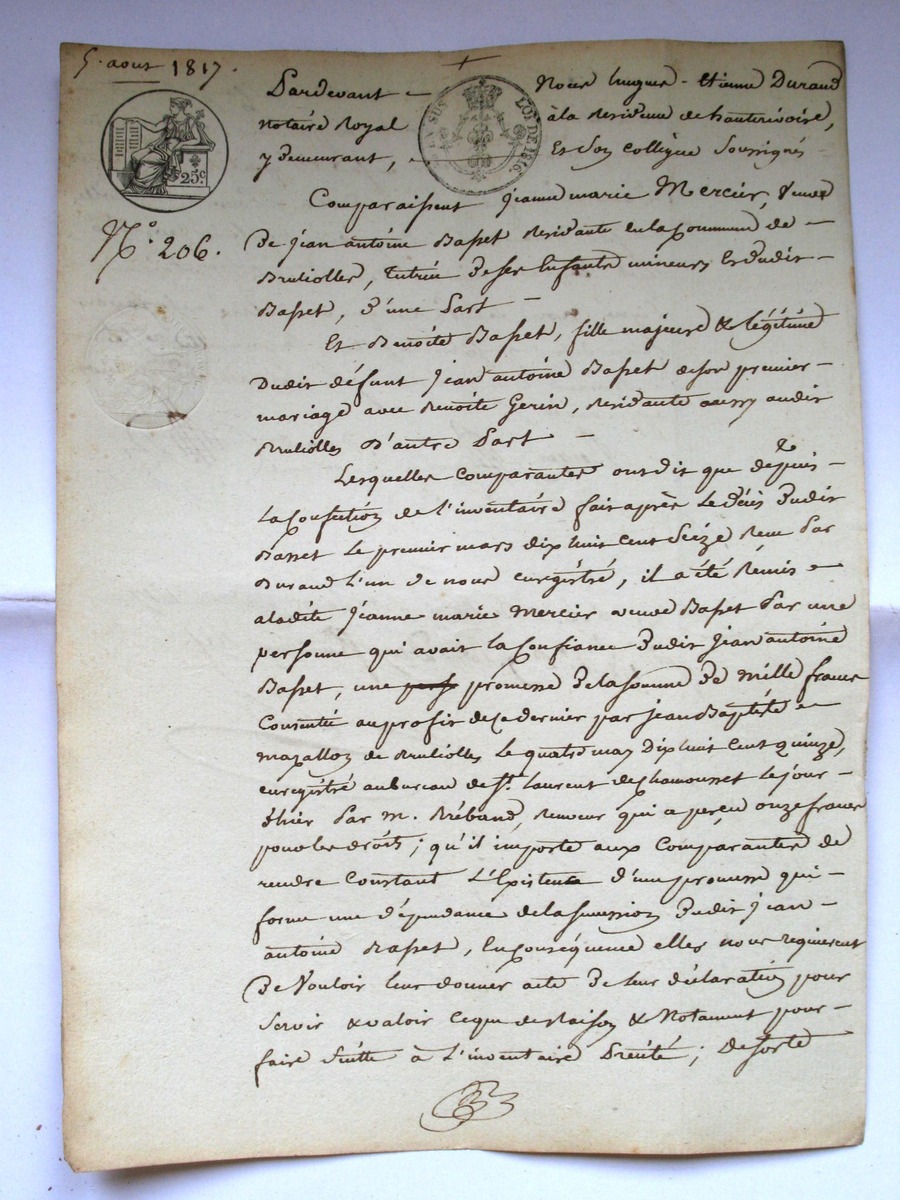 5. aout 1817.
Pardevant - Nous hugues - Etienne Durand
notaire Royal à la Residence de hauterivoire,
y demeurant, et Son collègue Soussignés
EN SUS LOI DE 1816.
25c
N.° 206.
Comparaissent Jeanne marie Mercier, veuve
De Jean antoine Basset Residante en la Commune de -
Brulliolles, tutrice De ses Enfants mineurs et Dudit -
Basset, D'une Part -
Et Benoite Basset, fille majeure & légitime
Dudit défunt Jean antoine Basset de son premier -
mariage avec Benoite Gerin, Residante aussi audit
Brulliolles D'autre Part -
Lesquelles Comparantes ont dit que depuis -
La Confection de l'inventaire fait après le Décès Dudit
Basset le premier mars dix huit Cent Seize Reçu Par
Durand l'un de nous enregistré, il a été Remis -
a ladite Jeanne marie Mercier veuve Basset Par une
personne qui avait la Confiance Dudit Jean antoine
Basset, une promesse De la somme De mille francs
Consentie au profit de Ce dernier par Jean Baptiste -
mazallon de Brulliolles le quatre may Dix huit Cent quinze,
enregistré au bureau de St. Laurent de Chamousset le jour -
d'hier Par m. Rébaud, Receveur qui a perçu onze francs
pour les droits; qu'il importe aux Comparantes de
rendre Constant L'Existence d'une promesse qui -
forme une dépendance de la succession Dudit Jean -
antoine Basset, En Conséquence elles nous requierent
De Vouloir leur donner acte De leur déclaration pour
Servir & valoir Ce que de Raison & Notament pour -
faire Suitte à L'inventaire Précité; De sorte